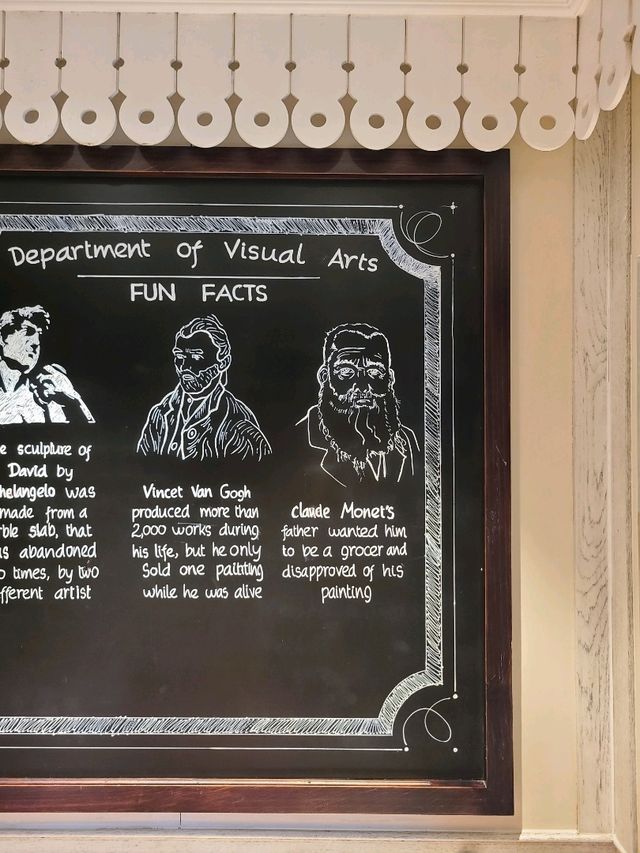 Department of Visual Arts
FUN FACTS
e sculpture of
David by
helangelo was
made from a
rble slab, that
s abandoned
o times, by two
fferent artist
Vincet Van Gogh
produced more than
2,000 works during
his life, but he only
Sold one painting
while he was alive
Claude Monet's
father wanted him
to be a grocer and
disapproved of his
painting